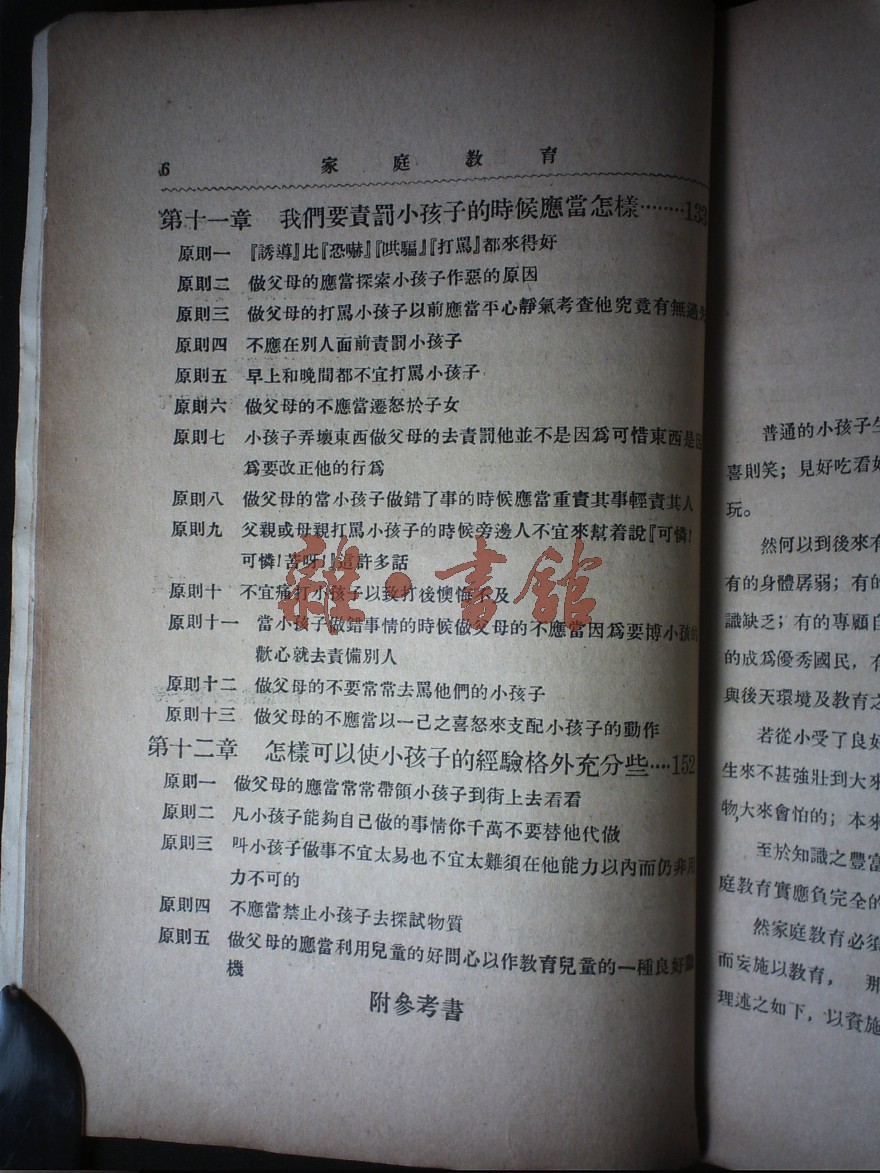 6 家庭教育
第十一章 我們要責罰小孩子的時候應當怎樣………133
原則一 『誘導』比『恐嚇』『哄騙』『打罵』都來得好
原則二 做父母的應當探索小孩子作惡的原因
原則三 做父母的打罵小孩子以前應當平心靜氣考查他究竟有無過
原則四 不應在別人面前責罰小孩子
原則五 早上和晚間都不宜打罵小孩子
原則六 做父母的不應當遷怒於子女
原則七 小孩子弄壞東西做父母的去責罰他並不是因爲可惜東西是因
爲要改正他的行爲
原則八 做父母的當小孩子做錯了事的時候應當重責其事輕責其人
原則九 父親或母親打罵小孩子的時候旁邊人不宜來幫着說『可憐!
可憐!苦呀!』這許多話
原則十 不宜痛打小孩子以致打後懊悔不及
原則十一 當小孩子做錯事情的時候做父母的不應當因爲要博小孩的
歡心就去責備別人
原則十二 做父母的不要常常去罵他們的小孩子
原則十三 做父母的不應當以一己之喜怒來支配小孩子的動作
第十二章 怎樣可以使小孩子的經驗格外充分些….152
原則一 做父母的應當常常帶領小孩子到街上去看看
原則二 凡小孩子能夠自己做的事情你千萬不要替他代做
原則三 叫小孩子做事不宜太易也不宜太難須在他能力以內而仍非用
力不可的
原則四 不應當禁止小孩子去探試物質
原則五 做父母的應當利用兒童的好問心以作教育兒童的一種良好動
機
附參考書
雜·書館
普通的小孩子生
喜則笑;見好吃看好
玩。
然何以到後來有
有的身體孱弱;有的
識缺乏;有的專顧自
的成爲優秀國民,有
與後天環境及教育之
若從小受了良好
生來不甚強壯到大來
物,大來會怕的;本來
至於知識之豐富
庭教育實應負完全的
然家庭教育必須
而妄施以教育, 那
理述之如下,以資施